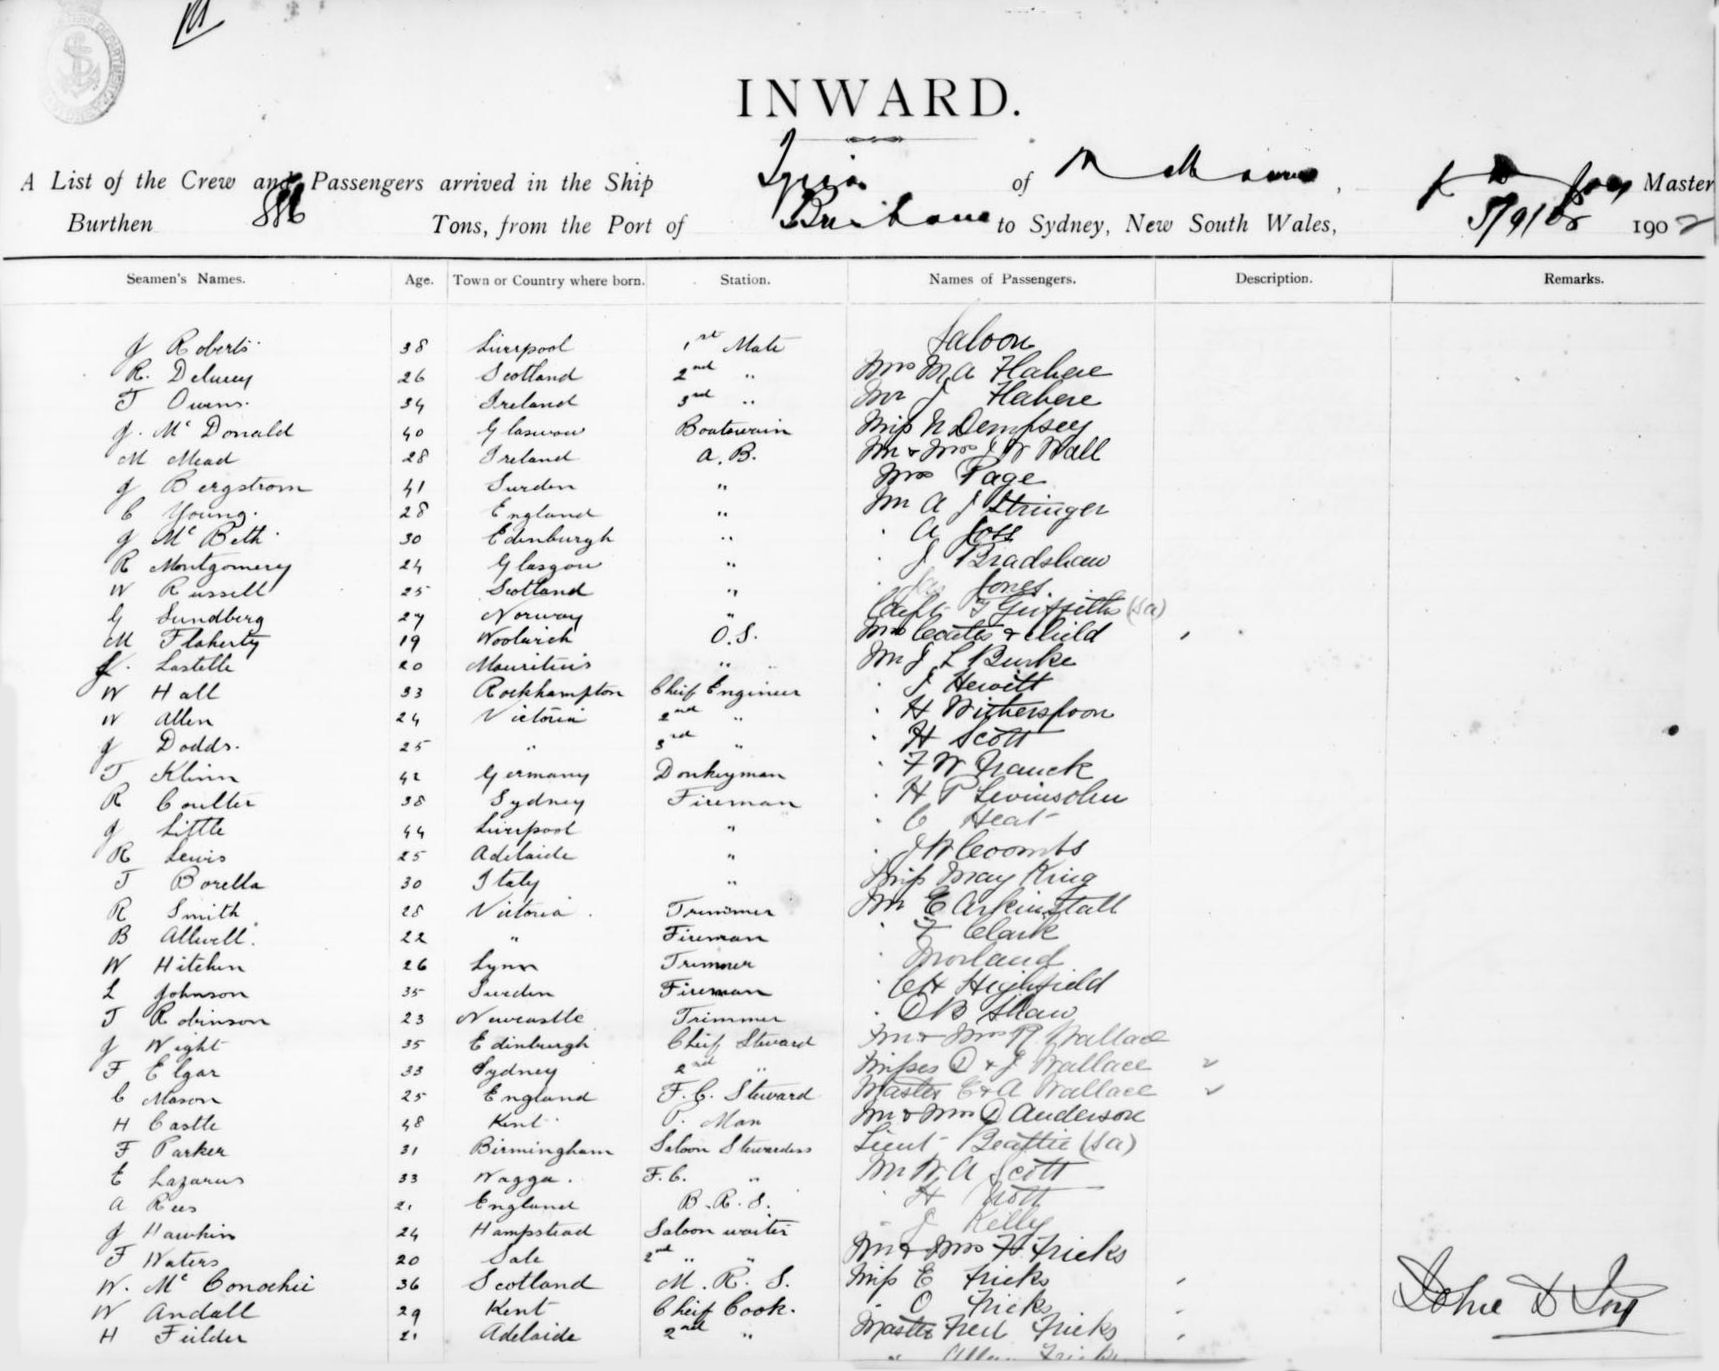 INWARD.
A List of the Crew and Passengers arrived in the Ship of , Master
Burthen 886 Tons, from the Port of Brisbane to Sydney, New South Wales, 5/9/02 1902
Seamen's Names. Age. Town or Country where born. Station. Names of Passengers. Description. Remarks.
Saloon
J Roberts 38 Liverpool 1st Mate
R. Delurey 26 Scotland 2nd " Mrs M A Flahere
T Owens. 34 Ireland 3rd " Mr J Flahere
J. Mc Donald 40 Glasgow Boatswain Miss N Dempsey
M Mead 28 Ireland A.B. Mr & Mrs J W Wall
J Bergstrom 41 Sweden " Mrs Page
C Young. 28 England " Mr A J Stringer
J Mc Beth 30 Edinburgh " " A Joss
R Montgomery 24 Glasgow " " J Bradshaw
W Russell 25 Scotland " " Jones
G Sundberg 27 Norway " Capt T Griffiths (SA)
M Flaherty 19 Woolwich O.S. Mrs Coates & Child
Lastelle 20 Mauritius " " Mr J L Burke
W Hall 33 Rockhampton Chief Engineer " J Hewitt
W Allen 24 Victoria 2nd " " H Witherspoon
J Dodds. 25 " 3rd " " H Scott
T Klinn 42 Germany Donkeyman " F W Franck
R Coulter 38 Sydney Fireman " H P Levinsohn
J Little 44 Liverpool " " C Heat
R Lewis 25 Adelaide " " J W Coombs
T Borella 30 Italy " Miss May King
R Smith 28 Victoria. Trimmer Mr E Arkinstall
B Allwell. 22 " Fireman " F Clark
W Hitchen 26 Lynn Trimmer " Morland
L Johnson 35 Sweden Fireman " C H Highfield
T Robinson 23 Newcastle Trimmer " O B Shaw
J Wight 35 Edinburgh Chief Steward Mr & Mrs R Wallace
F Elgar 33 Sydney 2nd " Misses D & J Wallace
C Mason 25 England F.C. Steward Master C & A Wallace
H Castle 48 Kent P. Man Mr & Mrs D Anderson
F Parker 31 Birmingham Saloon Stewardess Lieut Beattie (SA)
E Lazarus 33 Wagga. F.C. " Mr W A Scott
A Rees 21 England B.R.S. " H
J Hawkin 24 Hampstead Saloon waiter " J Kelly
F Waters 20 Sale 2nd " " Mr & Mrs H Fricks
W. Mc Conochie 36 Scotland M.R.S. Miss E Fricks
W Andall 29 Kent Chief Cook. " O Fricks
H Feilder 21 Adelaide 2nd " Master Fred Fricks
" Allan Fricks